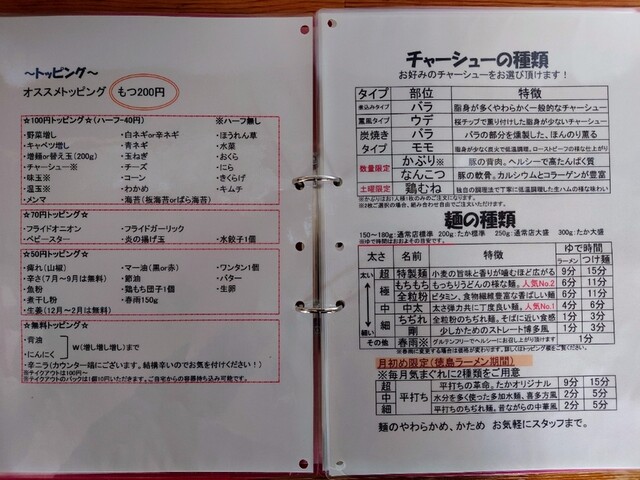 ～トッピング～
オススメトッピング もつ200円
☆100円トッピング☆(ハーフ-40円) ※ハーフ無し
・野菜増し ・白ネギor辛ネギ ・ほうれん草
・キャベツ増し ・青ネギ ・水菜
・増麺or替え玉(200g) ・玉ねぎ ・おくら
・チャーシュー※ ・チーズ ・にら
・味玉※ ・コーン ・きくらげ
・温玉※ ・わかめ ・キムチ
・メンマ ・海苔(板海苔orばら海苔)
☆70円トッピング☆
・フライドオニオン ・フライドガーリック
・ベビースター ・炎の揚げ玉 ・水餃子1個
☆50円トッピング☆
・痺れ(山椒) ・マー油(黒or赤) ・ワンタン1個
・辛さ(7月～9月は無料) ・節油 ・バター
・魚粉 ・鶏もも団子1個 ・生卵
・煮干し粉 ・春雨150g
・生姜(12月～2月は無料)
☆無料トッピング☆
・背油
・にんにく w(増し増し増し)まで
・辛ニラ(カウンター端にございます。結構辛いのでお気を付けください!)
※テイクアウトは100円～
※テイクアウトのパックは1個10円いただきます。ご自宅からの容器持ち込み可能です。
チャーシューの種類
お好みのチャーシューをお選び頂けます!
タイプ 部位 特徴
煮込みタイプ バラ 脂身が多くやわらかく一般的なチャーシュー
薫風タイプ ウデ 桜チップで薫り付けした脂身が少ないチャーシュー
炭焼き バラ バラの部分を燻製した、ほんのり薫る
タイプ モモ 脂身が少なく炭火で低温調理、ローストビーフの様な仕上がり
数量限定 かぶり※ 豚の背肉。ヘルシーで高たんぱく質
なんこつ 豚の軟骨。カルシウムとコラーゲンが豊富
土曜限定 鶏むね 独自の調理法で丁寧に低温調理した生ハムの様な味わい
※かぶりはお1人様1枚のみのご注文になります。
※3枚ご選択の場合、組み合わせ自由でご注文いただけます。
麺の種類
150～180g:通常店標準 200g:たか標準 250g:通常店大盛 300g:たか大盛
※ゆで時間はおおよその目安です。
太さ 名前 特徴 ゆで時間
ラーメン つけ麺
太い 超 特製麺 小麦の旨味と香りが噛むほど広がる 9分 15分
極 もちもち もっちりうどんの様な麺。人気No.2 6分 11分
全粒粉 ビタミン、食物繊維豊富な香ばしい麺 6分 11分
中 中太 太さ弾力共に丁度良い麺。人気No.1 4分 6分
細 ちぢれ 全粒粉のちぢれ麺。そばに近い食感 1分 3分
細い 剛 少しかためのストレート博多風 1分 3分
その他 春雨※ グルテンフリーでヘルシーにお召し上がり頂けます 1分
※春雨に変更する場合は価格が変わります。詳しくはトッピング欄をご覧ください。
月初め限定(徳島ラーメン期間)
※毎月気まぐれに2種類をご用意
超 平打ち 平打ちの革命。たかオリジナル 9分 15分
中 水分を多く使った多加水麺、喜多方風 2分 5分
細 平打ちのちぢれ麺。昔ながらの中華風 2分 5分
麺のやわらかめ、かため お気軽にスタッフまで。